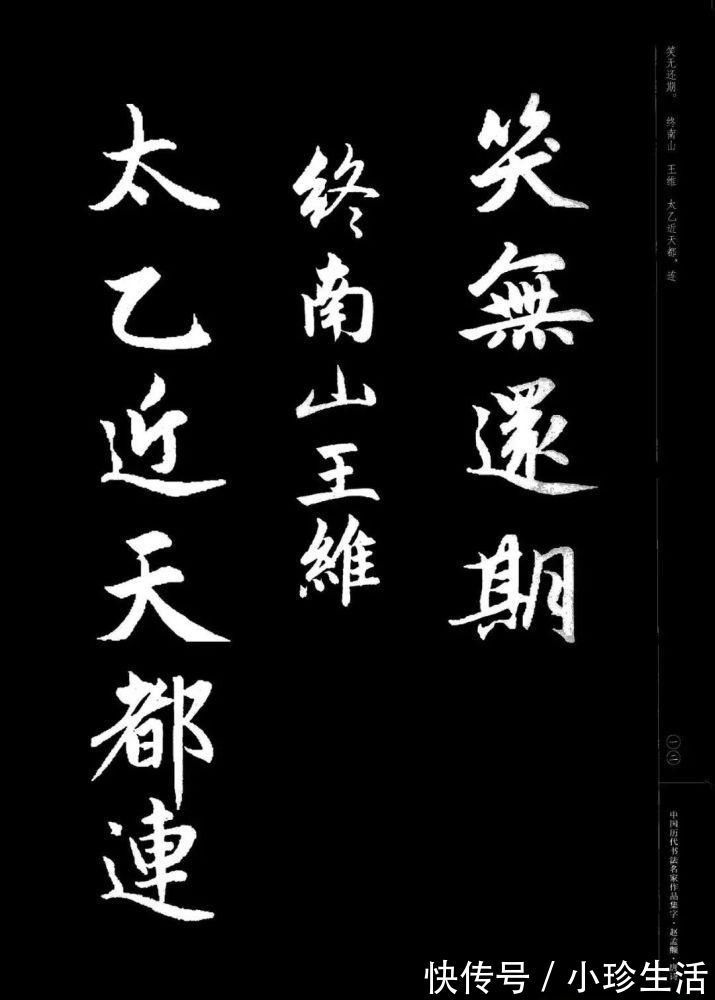 笑無還期
終南山王維
太乙近天都連
笑无还期。 终南山 王维 太乙近天都，连
一二
中国历代书法名家作品集字·赵孟頫·
快传号／小珍生活